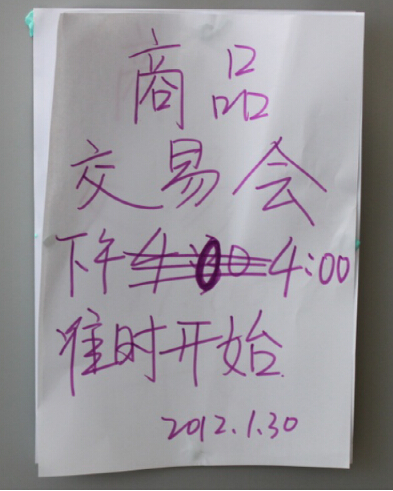 商品
交易会
下午4:00
准时开始
2012.1.30